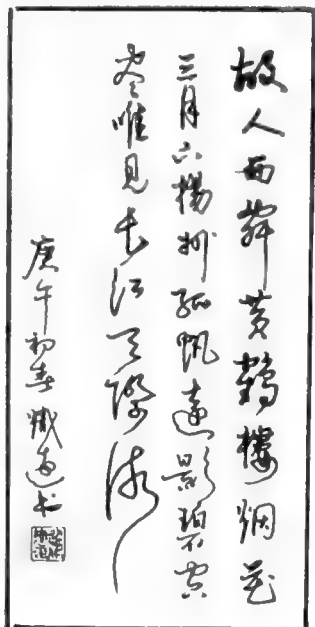 故人西辭黄鶴樓烟花
三月下揚州孤帆遠影碧空
尽唯见长江天際流
庚午初春 书